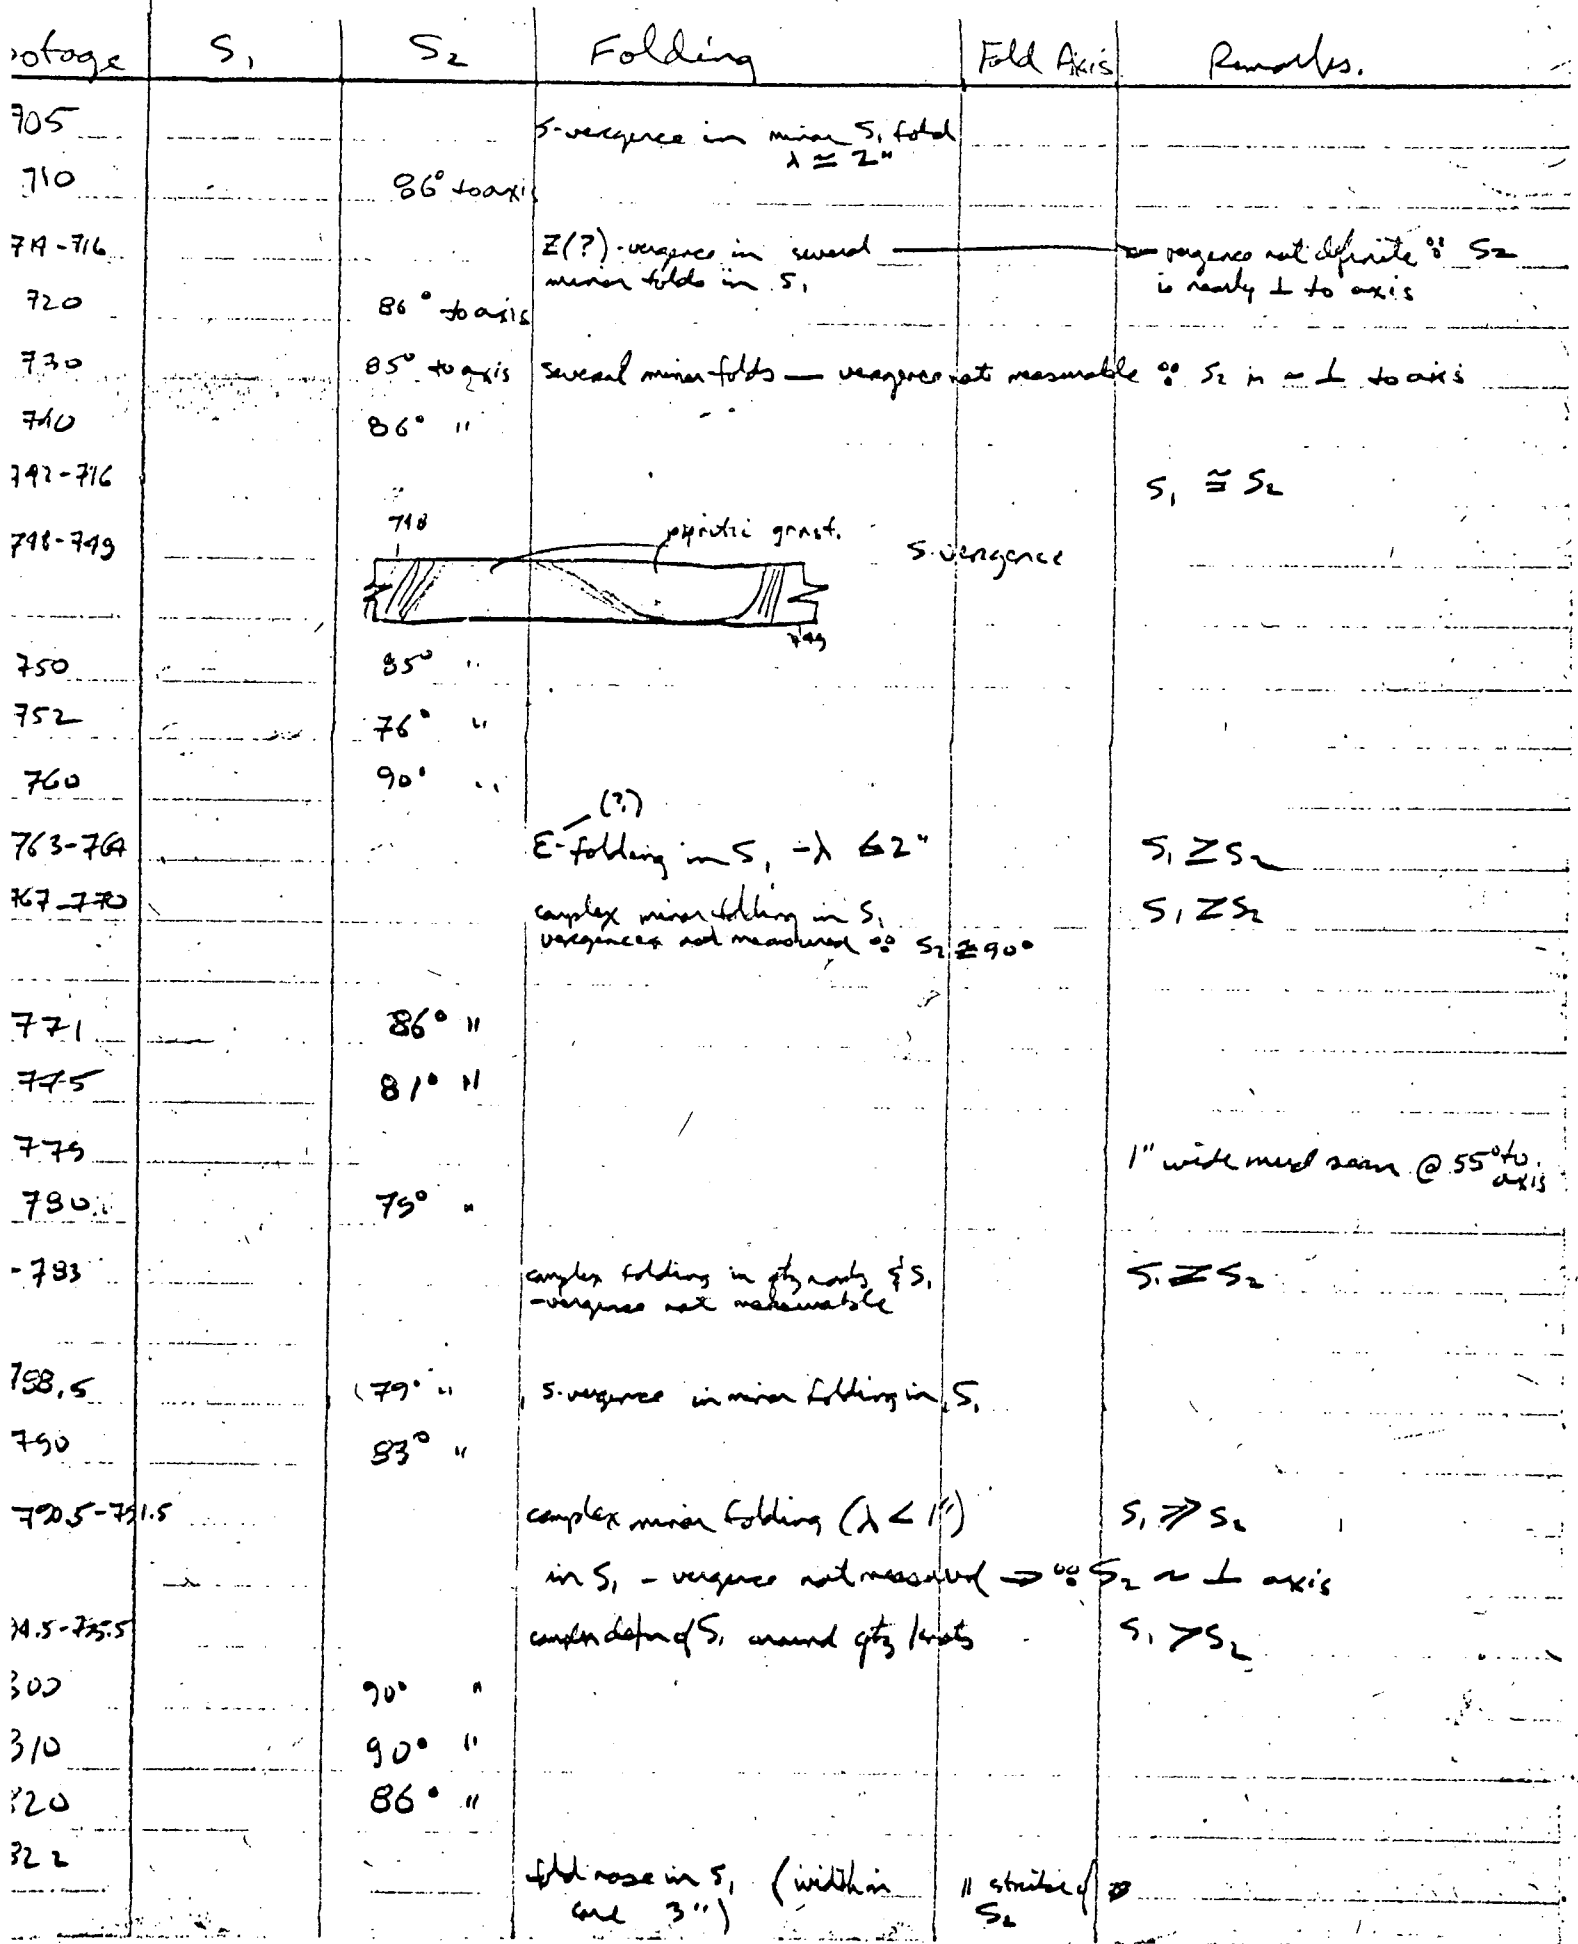 ootage S₁ S₂ Folding Fold Axis Remarks.
705 S-vergence in minor S₁ fold
λ ≅ 2"
710 86° to axis
714-716 Z(?)-vergence in several vergence not definite ∵ S₂
minor folds in S₁ is nearly ⊥ to axis
720 86° to axis
730 85° to axis several minor folds — vergence not measurable ∵ S₂ is ~ ⊥ to axis
740 86° "
742-746 S₁ ≅ S₂
748-749 748 pyritic grnst. S-vergence
749
750 85° "
752 76° "
760 90° "
(?)
763-764 E-folding in S₁ - λ ≤ 2" S₁ ≥ S₂
767-770 complex minor folding in S₁ S₁ ≥ S₂
vergences not measured ∵ S₂ ≅ 90°
771 86° "
775 81° "
779 1" wide mud seam @ 55° to
axis
780 75° "
-783 complex folding in qtz & S₁ S₁ ≥ S₂
-vergence not measurable
788.5 79° " S-vergence in minor folding in S₁
790 83° "
790.5-791.5 complex minor folding (λ < 1") S₁ ≫ S₂
in S₁ - vergence not measured → ∵ S₂ ~ ⊥ axis
94.5-795.5 complex defn of S₁ around qtz knots S₁ > S₂
800 90° "
810 90° "
820 86° "
822 fold nose in S₁ (width in ∥ strike of
core 3") S₂